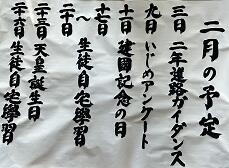 二月の予定
三日 二年進路ガイダンス
九日 いじめアンケート
十一日 建國記念の日
十七日
〜 生徒自宅學習
二十日
二十三日 天皇誕生日
二十六日 生徒自宅學習